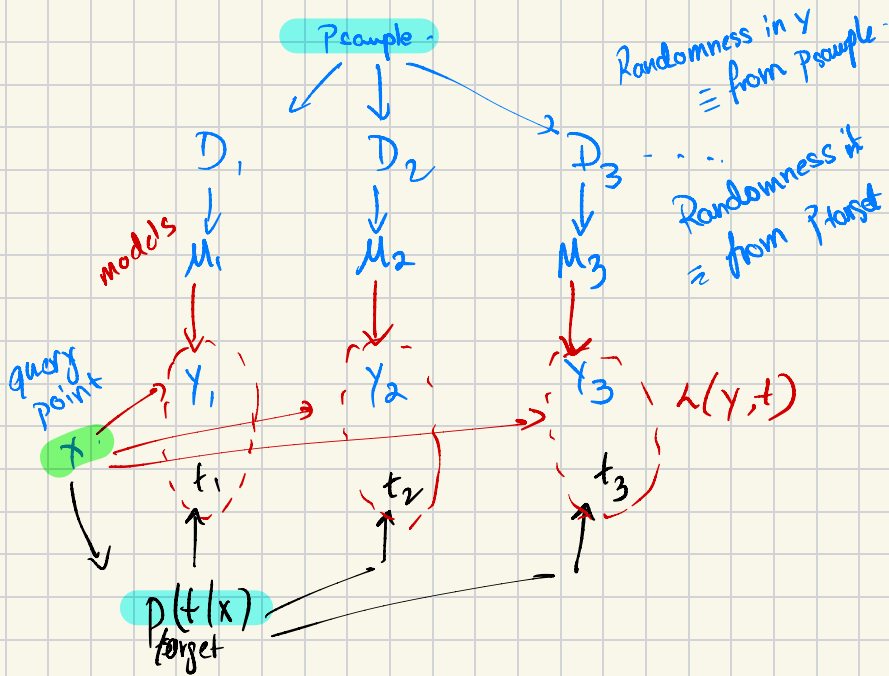 Psample.
Randomness in y
≡ from Psample.
D1 D2 D3 - - . . .
Randomness it
= from Ptarget
models
M1 M2 M3
query
point
Y1 Y2 Y3
L(y,t)
x
t1 t2 t3
p(t|x)
target